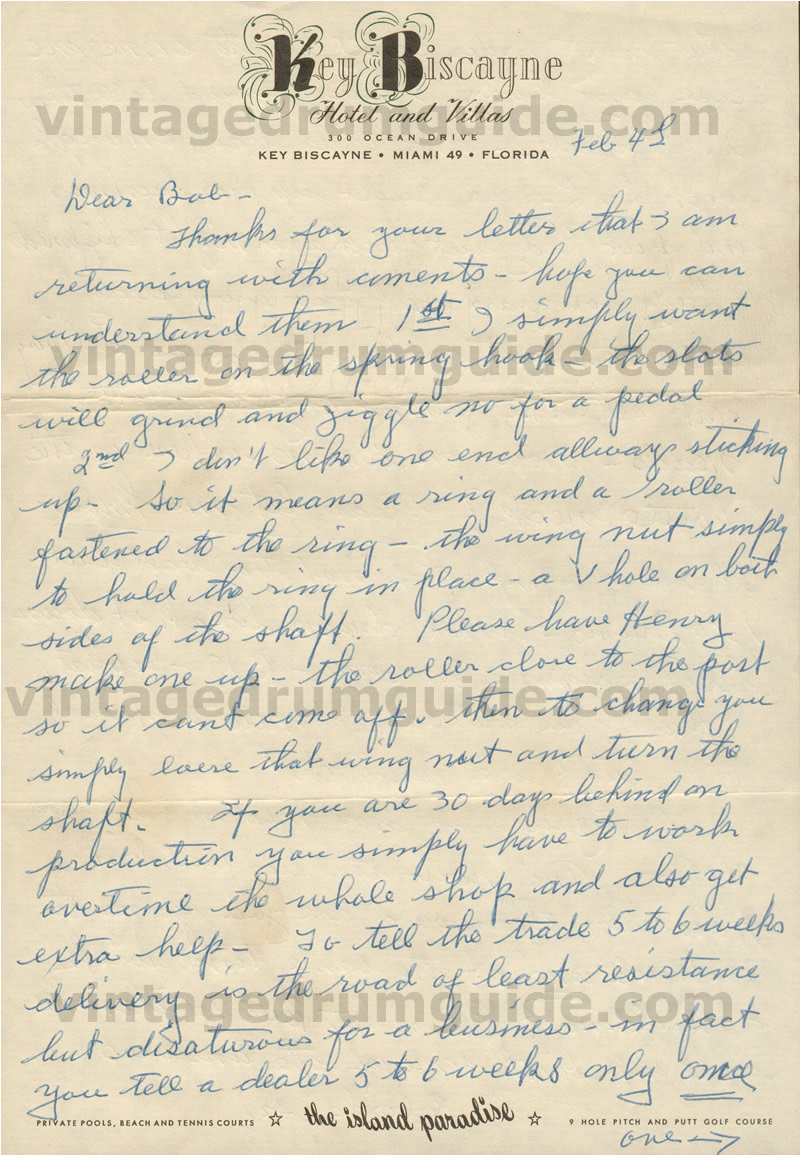 Key Biscayne
Hotel and Villas
300 OCEAN DRIVE
KEY BISCAYNE • MIAMI 49 • FLORIDA
Feb 4
Dear Bob-
Thanks for your letter that I am
returning with coments - hope you can
understand them 1st I simply want
the roller on the spring hook - the slots
will grind and jiggle no for a pedal
2nd I don't like one end allways sticking
up- So it means a ring and a roller
fastened to the ring - the wing nut simply
to hold the ring in place - a V hole on both
sides of the shaft. Please have Henry
make one up - the roller close to the post
so it cant come off. then to change you
simply loose that wing nut and turn the
shaft. If you are 30 days behind on
production you simply have to work
overtime the whole shop and also get
extra help- To tell the trade 5 to 6 weeks
delivery is the road of least resistance
but disaturous for a business - in fact
you tell a dealer 5 to 6 weeks only once
PRIVATE POOLS, BEACH AND TENNIS COURTS ☆ the island paradise ☆ 9 HOLE PITCH AND PUTT GOLF COURSE
over→
vintagedrumguide.com
vintagedrumguide.com
vintagedrumguide.com
vintagedrumguide.com